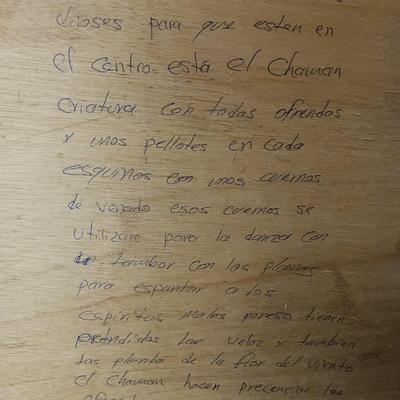 dioses para que esten en
el centro está el Chaman
criatura con todas ofrendas
x unos pellotes en cada
esquinas con unos cuernos
de venado esos cuernos se
utilizan para la danza con
un tambor con las plumas
para espantar a los
espiritus malos poreso tienen
prendidas las velaz x tambien
las planta de la flor del viento
el Chaman hacen precenciar los